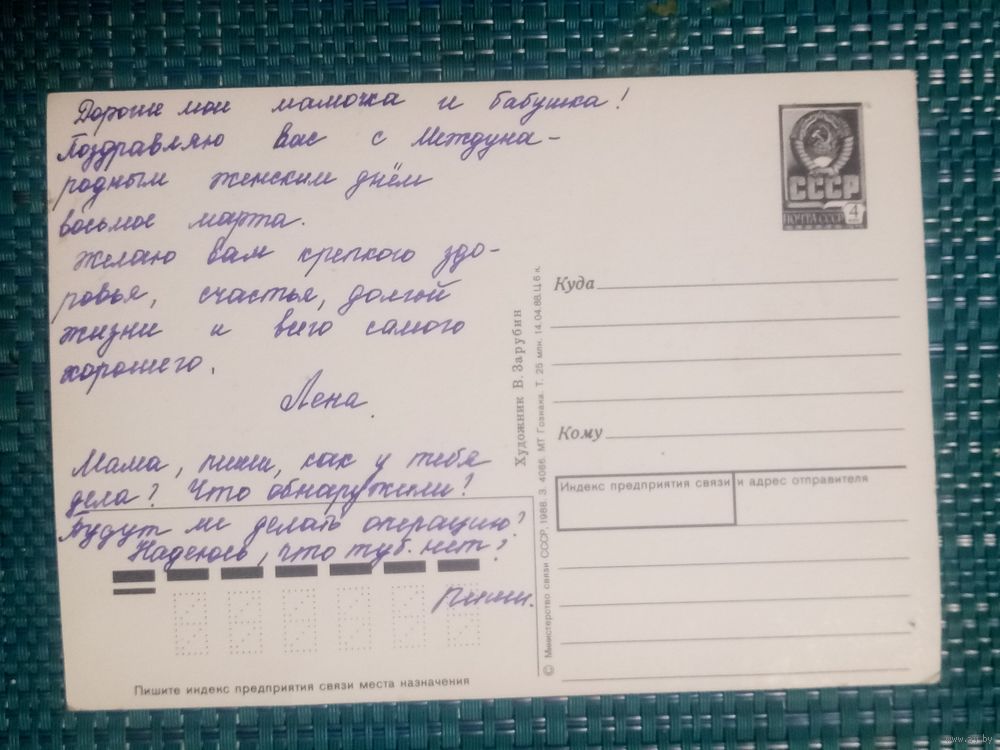 Дорогие мои мамочка и бабушка!
Поздравляю Вас с Междуна-
родным женским днём
восьмое марта.
Желаю вам крепкого здо-
ровья, счастья, долгой
жизни и всего самого
хорошего.
Лена.
Мама, пиши, как у тебя
дела? Что обнаружили?
Будут ли делать операцию?
Надеюсь, что туб. нет?
Пиши.
Пишите индекс предприятия связи места назначения
Художник В. Зарубин
© Министерство связи СССР, 1988. З. 4086. МТ Гознака. Т. 25 млн. 14.04.88. Ц. 6 к.
СССР
ПОЧТА СССР 4
Куда
Кому
Индекс предприятия связи и адрес отправителя
www.ay.by